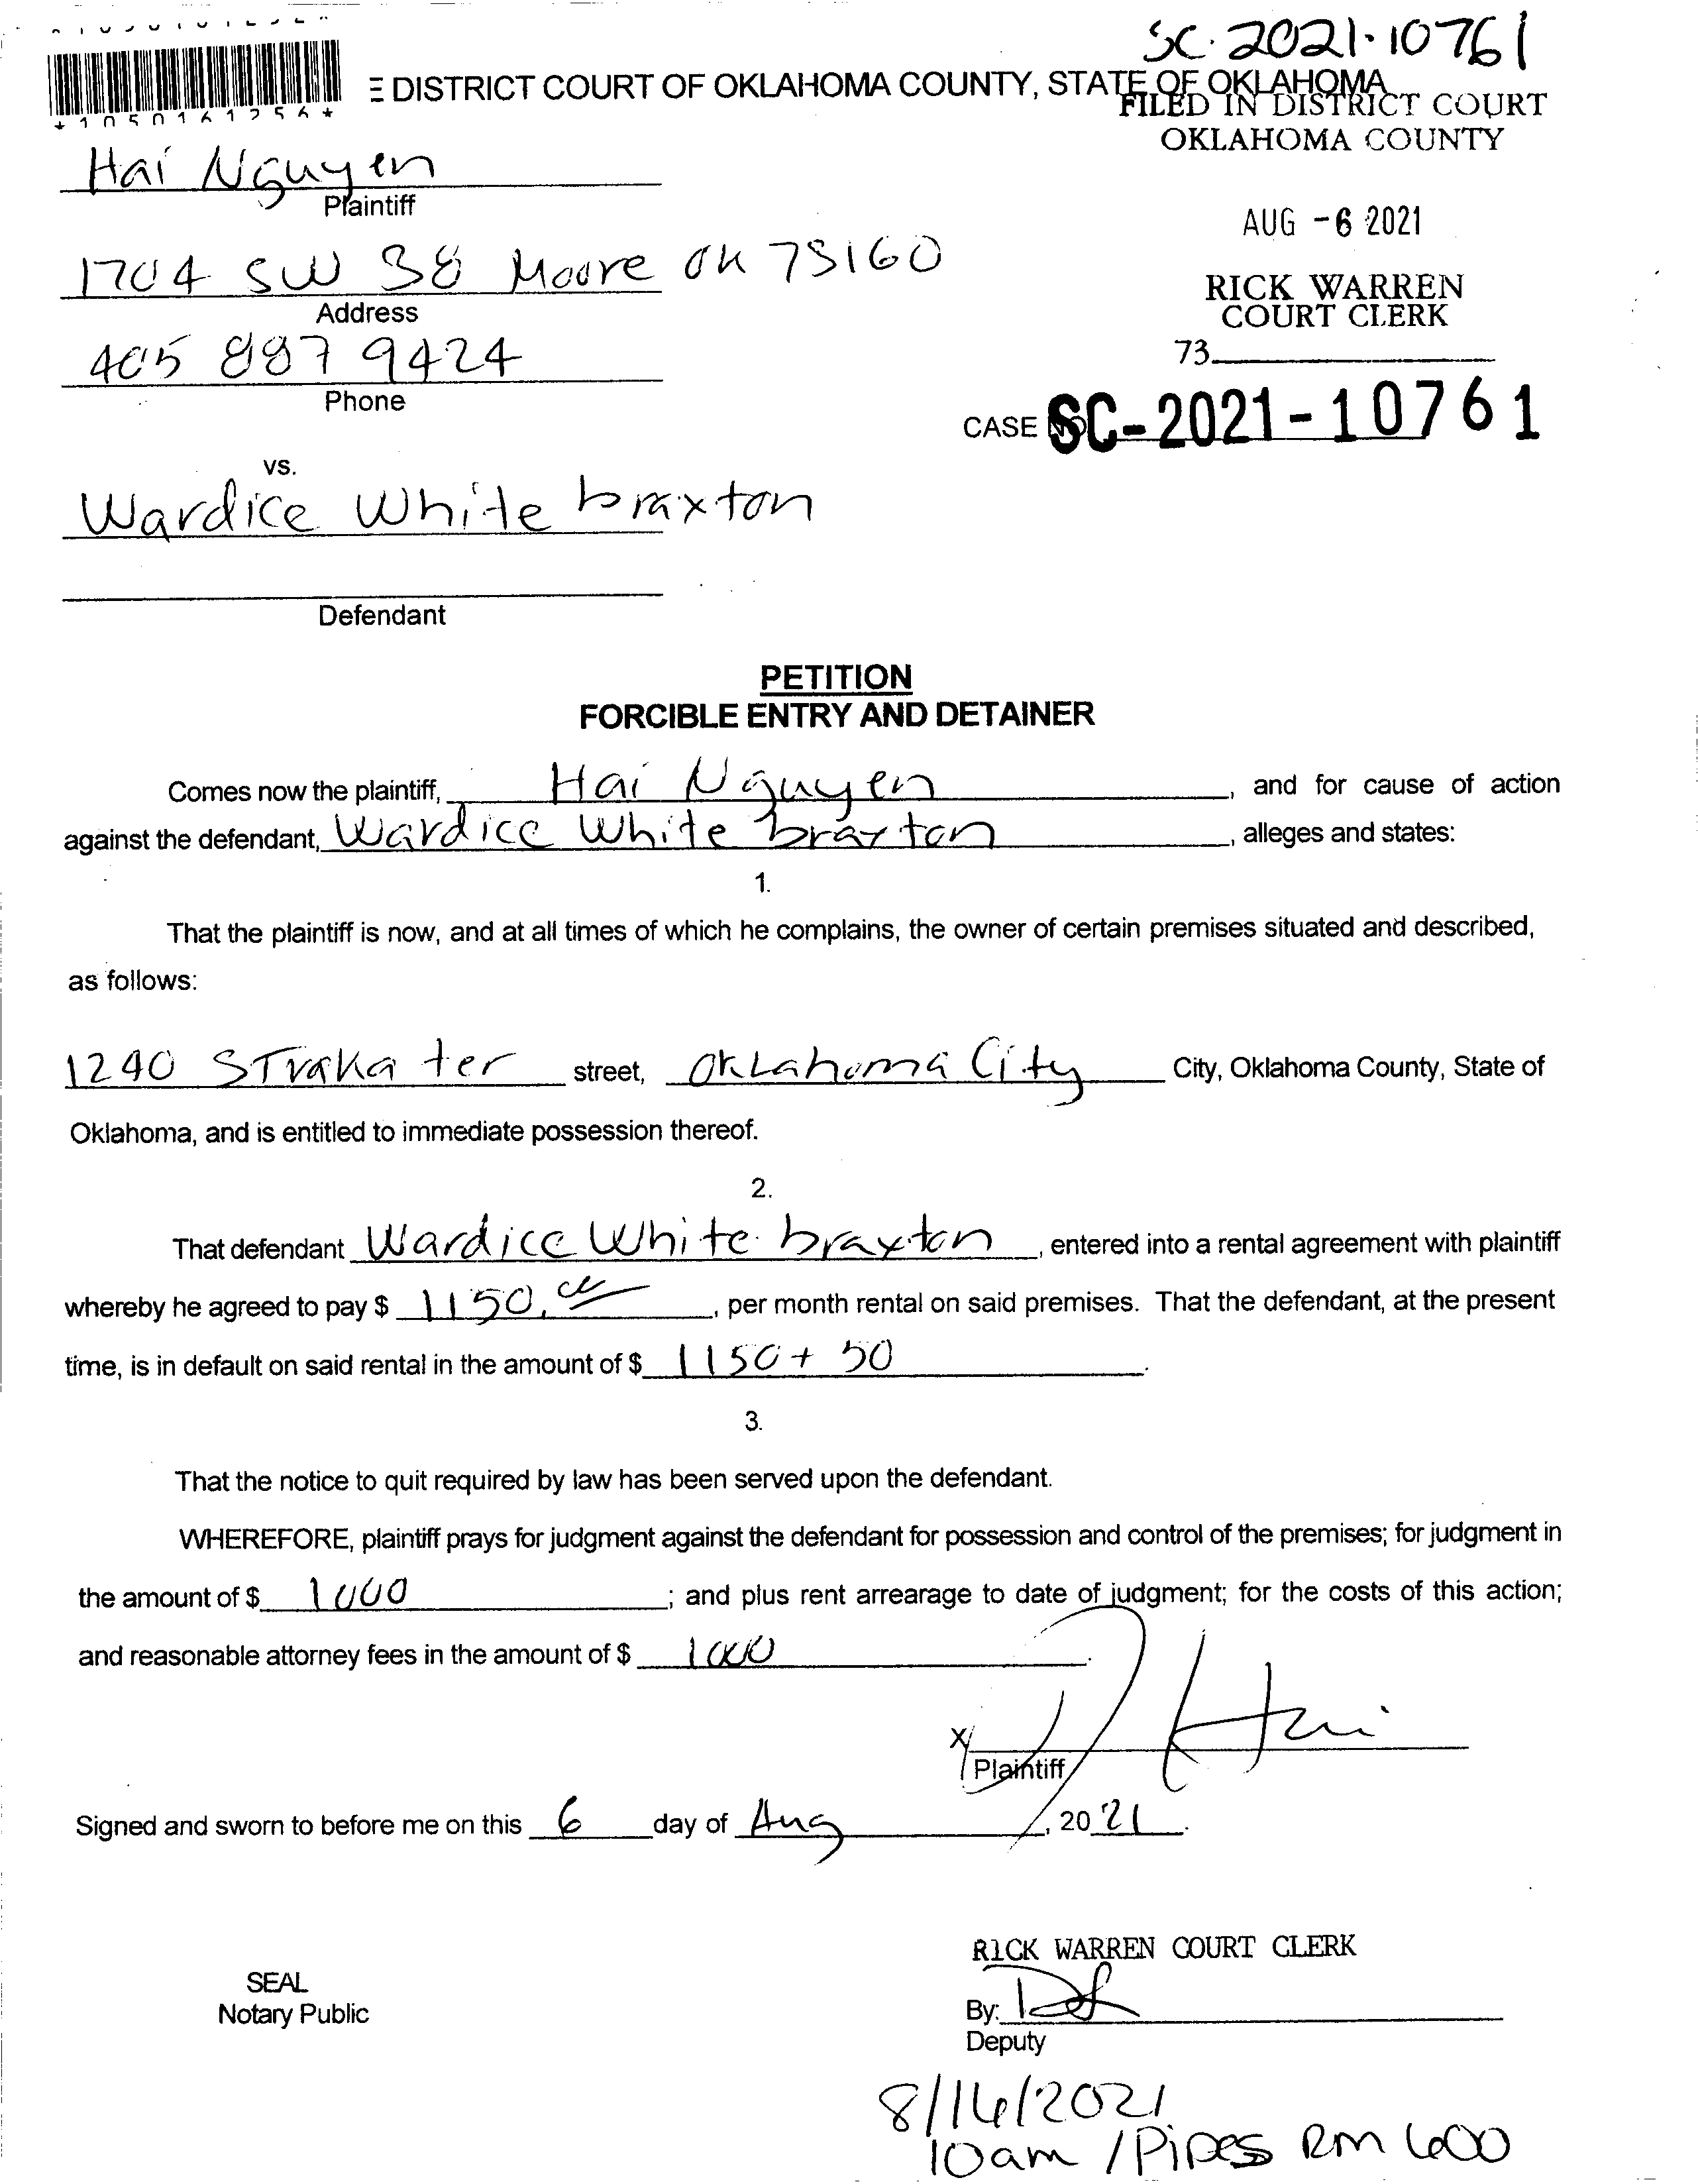 SC-2021-10761
*1050161256*
E DISTRICT COURT OF OKLAHOMA COUNTY, STATE OF OKLAHOMA
FILED IN DISTRICT COURT
OKLAHOMA COUNTY
Hai Nguyen
Plaintiff
AUG -6 2021
1704 SW 38 Moore OK 73160
Address
RICK WARREN
COURT CLERK
405 887 9424
Phone
73
CASE NO SC-2021-10761
vs.
Wardice White braxton
Defendant
PETITION
FORCIBLE ENTRY AND DETAINER
Comes now the plaintiff, Hai Nguyen, and for cause of action
against the defendant, Wardice White braxton, alleges and states:
1.
That the plaintiff is now, and at all times of which he complains, the owner of certain premises situated and described,
as follows:
1240 STraka ter street, Oklahoma City City, Oklahoma County, State of
Oklahoma, and is entitled to immediate possession thereof.
2.
That defendant Wardice White braxton, entered into a rental agreement with plaintiff
whereby he agreed to pay $ 1150.00, per month rental on said premises. That the defendant, at the present
time, is in default on said rental in the amount of $ 1150 + 50.
3.
That the notice to quit required by law has been served upon the defendant.
WHEREFORE, plaintiff prays for judgment against the defendant for possession and control of the premises; for judgment in
the amount of $ 1000; and plus rent arrearage to date of judgment; for the costs of this action;
and reasonable attorney fees in the amount of $ 1000.
X Hai
Plaintiff
Signed and sworn to before me on this 6 day of Aug, 20 21.
RICK WARREN COURT CLERK
SEAL
Notary Public
By:
Deputy
8/16/2021
10am / Pipes Rm 600